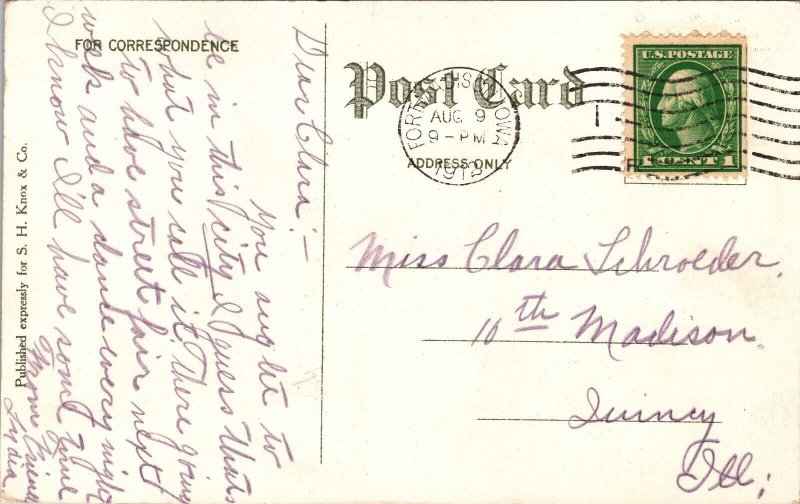 FOR CORRESPONDENCE
Post Card
ADDRESS ONLY
U.S. POSTAGE
1 CENT 1
FORT IOWA
AUG 9
9-PM
1912
Dear Clara:-
You aught to
be in this city I guess thats
what you call it. There going
to have street fair next
week and a dance every night
I know I'll have some time
From Friend
Lydia
Miss Clara Schroeder.
10th Madison.
Quincy
Ill;
Published expressly for S. H. Knox & Co.